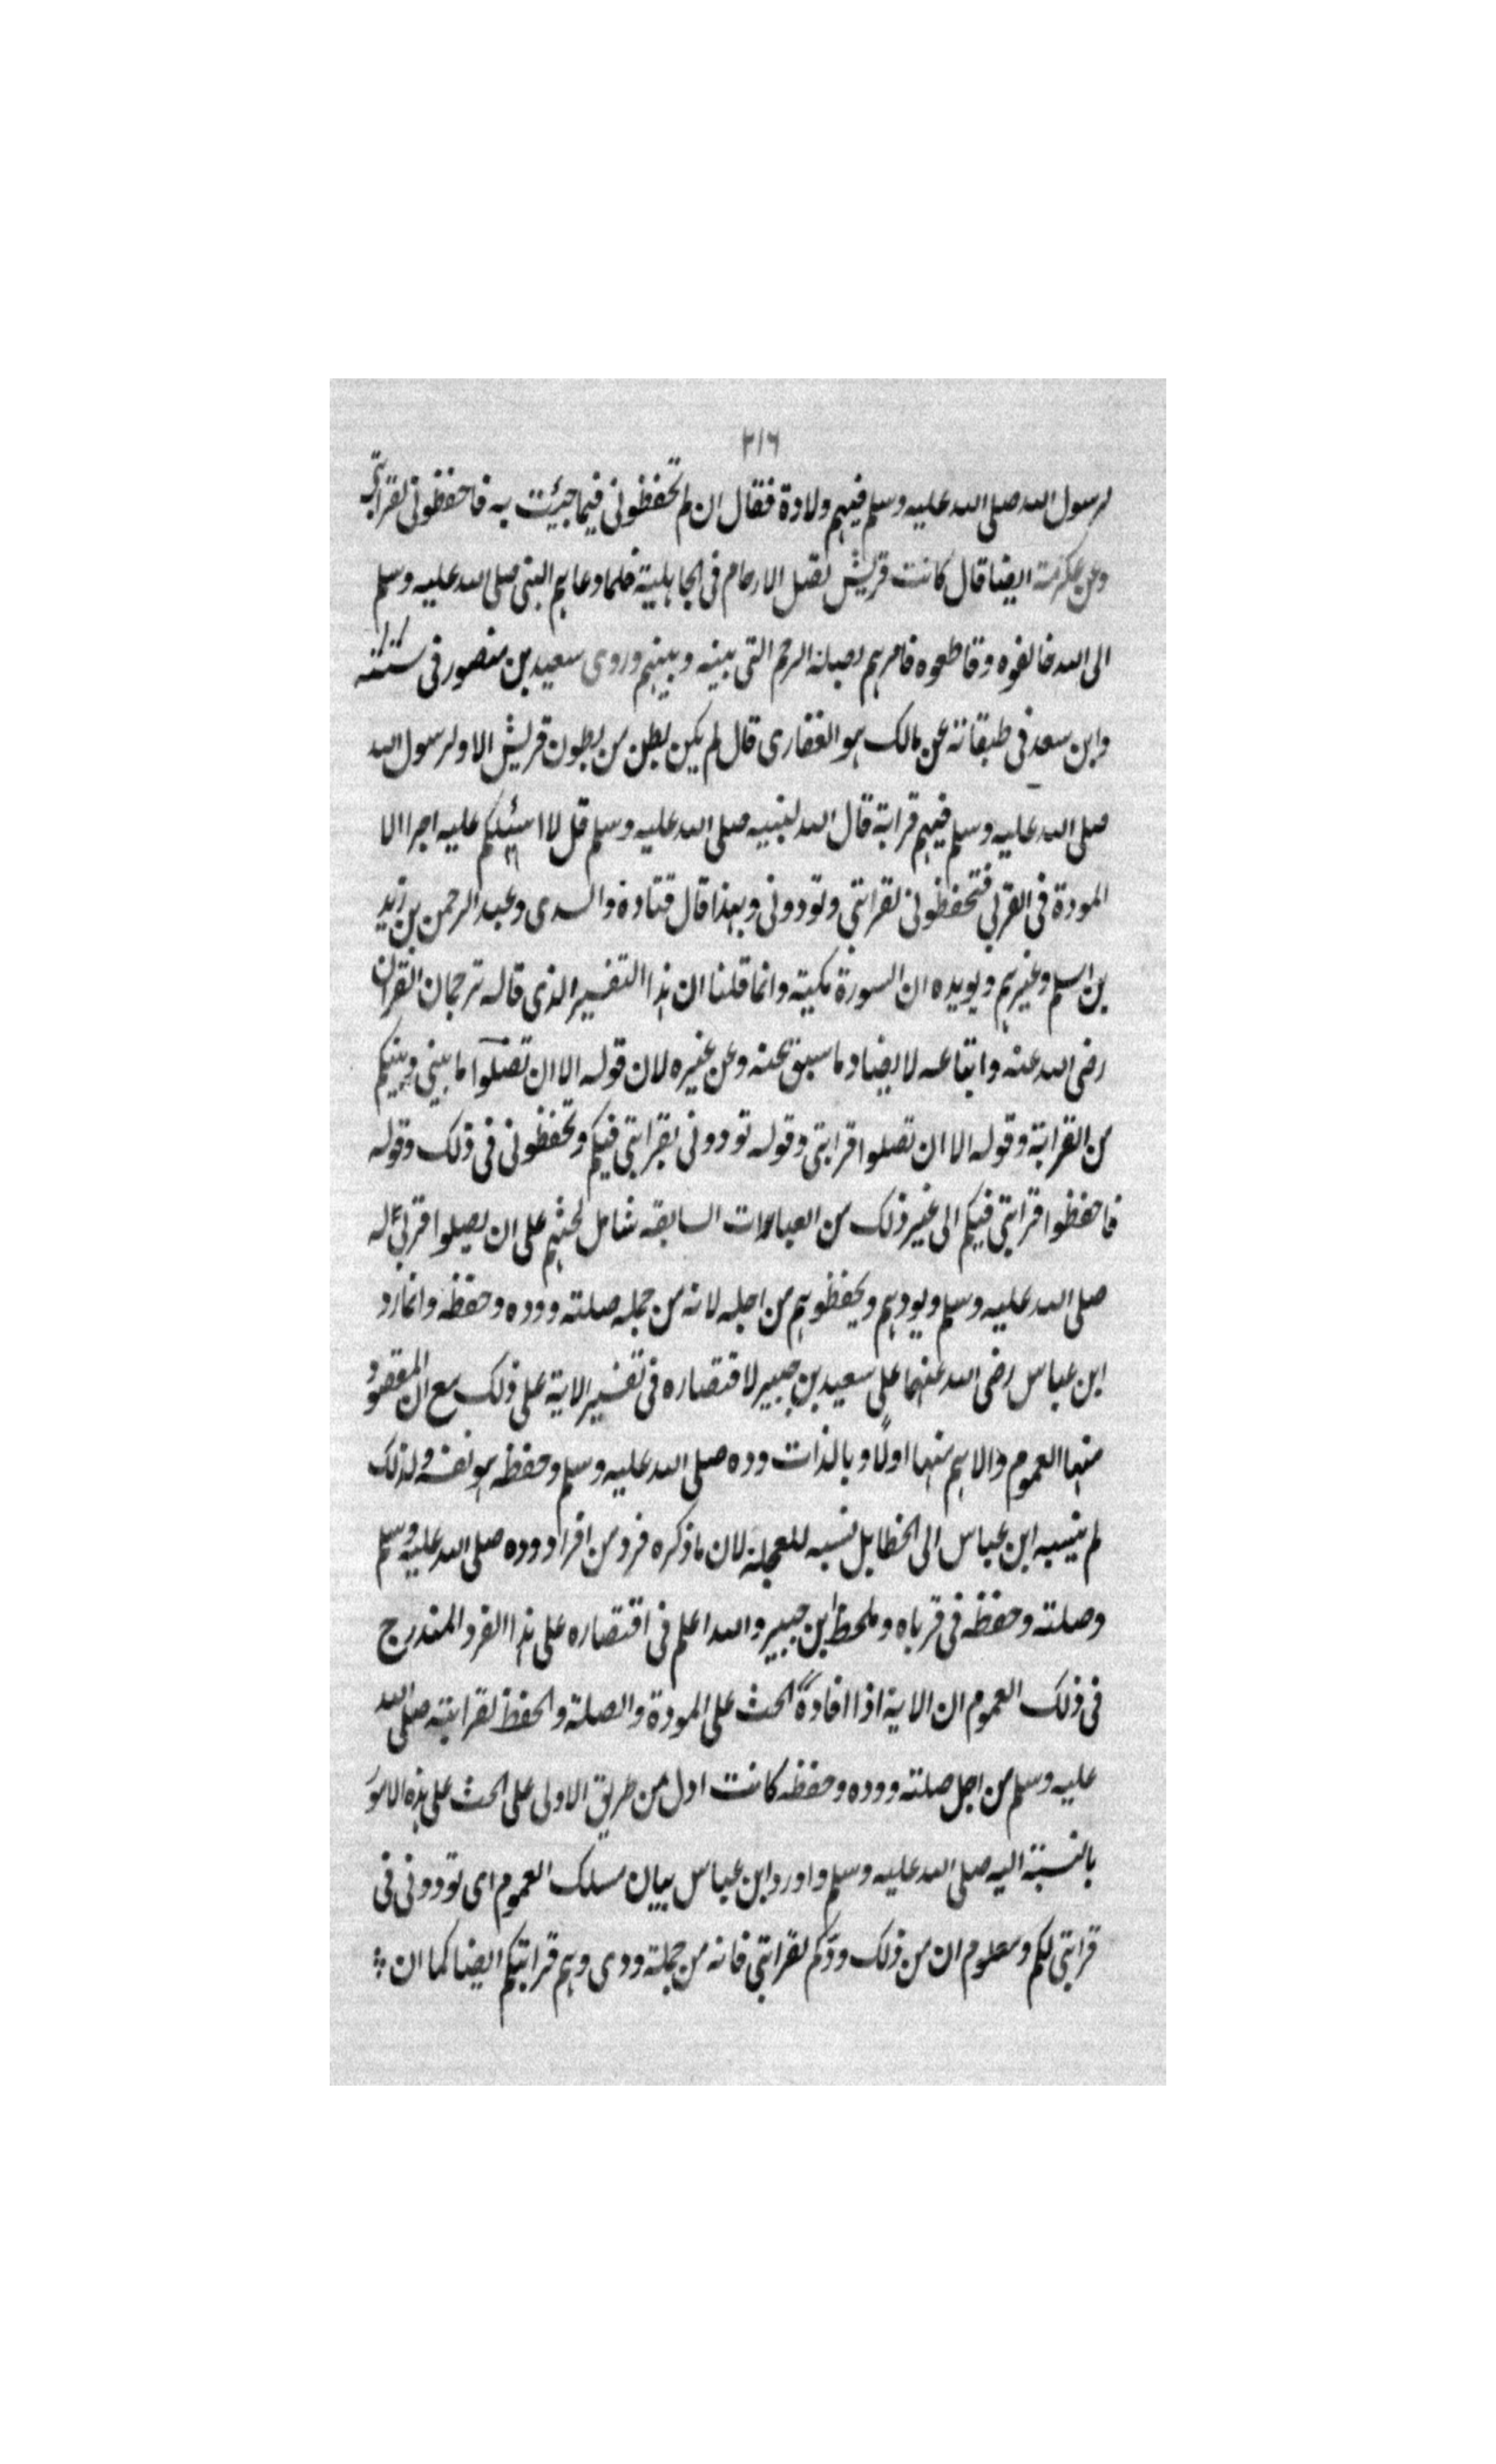 ٣١٦
لرسول الله صلى الله عليه وسلم فيهم ولادة فقال ان لم تحفظونى فيما جيئت به فاحفظونى لقرابتى
وعن عكرمة ايضا قال كانت قريش تصل الارحام فى الجاهلية فلما دعاهم النبى صلى الله عليه وسلم
الى الله خالفوه وقاطعوه فامرهم بصلة الرحم التى بينه وبينهم وروى سعيد بن منصور فى سننه
وابن سعد فى طبقاته عن مالك هو الغفارى قال لم يكن بطن من بطون قريش الا ولرسول الله
صلى الله عليه وسلم فيهم قرابة قال الله لنبيه صلى الله عليه وسلم قل لا اسئلكم عليه اجرا الا
المودة فى القربى فتحفظونى لقرابتى وتودونى وبهذا قال قتادة والسدى وعبد الرحمن بن زيد
بن اسلم وغيرهم ويويده ان السورة مكية وانما قلنا ان هذا التفسير الذى قاله ترجمان القران
رضى الله عنه واتباعه لا يضاد ما سبق عنه وعن غيره لان قوله الا ان تصلوا ما بينى وبينكم
من القرابة وقوله الا ان تصلوا قرابتى وقوله تودونى بقرابتى فيكم وتحفظونى فى ذلك وقوله
فاحفظوا قرابتى فيكم الى غير ذلك من العبارات السابقه شامل لحثهم على ان يصلوا اقرباله
صلى الله عليه وسلم ويودهم ويحفظوهم من اجله لانه من جمله صلته ووده وحفظه وانما رد
ابن عباس رضى الله عنهما على سعيد بن جبير لاقتصاره فى تفسير الاية على ذلك مع ان المقصود
منها العموم والاهم منها اولًا وبالذات وده صلى الله عليه وسلم وحفظه هو نفسه ولذلك
لم ينسبه ابن عباس الى الخطا بل نسبه للعجلة لان ما ذكره فرد من افراد وده صلى الله عليه وسلم
وصلته وحفظه فى قرباه وملحظ ابن جبير والله اعلم فى اقتصاره على هذا الفرد المندرج
فى ذلك العموم ان الاية اذا افادة الحث على المودة والصلة والحفظ لقرابته صلى الله
عليه وسلم من اجل صلته ووده وحفظه كانت ادل من طريق الاولى على الحث على هذه الامور
بالنسبة اليه صلى الله عليه وسلم واورد ابن عباس بيان مسلك العموم اى تودونى فى
قرابتى لكم ومعلوم ان من ذلك ودّكم لقرابتى فانه من جملة ودى وهم قرابتكم ايضا كما ان